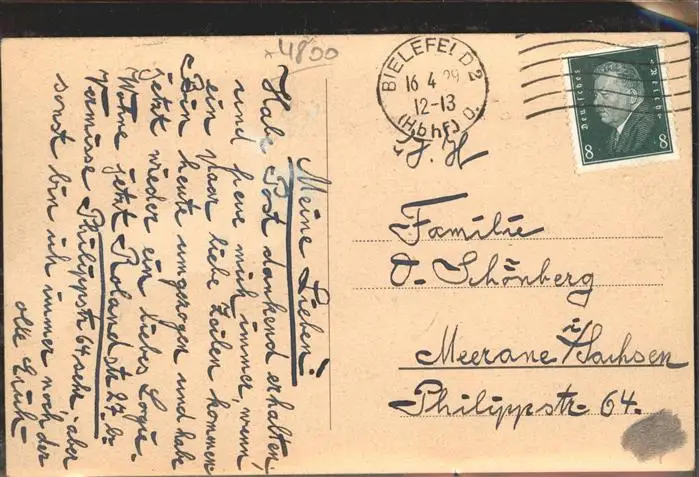 4800
Meine Lieben!
Habe Post dankend erhalten,
und freue mich immer, wenn
ein paar liebe Zeilen kommen
Bin heute umgezogen und habe
jetzt wieder ein liebes Logis.
Wohne jetzt Rolandstr. 27. b.
Vermisse Philippstr 64 sehr, aber
sonst bin ich immer noch der
alte Erich
BIELEFELD 2
16 4 29
12-13
(Hbhf) O.
Familie
O. Schönberg
Meerane i/Sachsen
Philippstr. 64.
Deutsches Reich
8 8